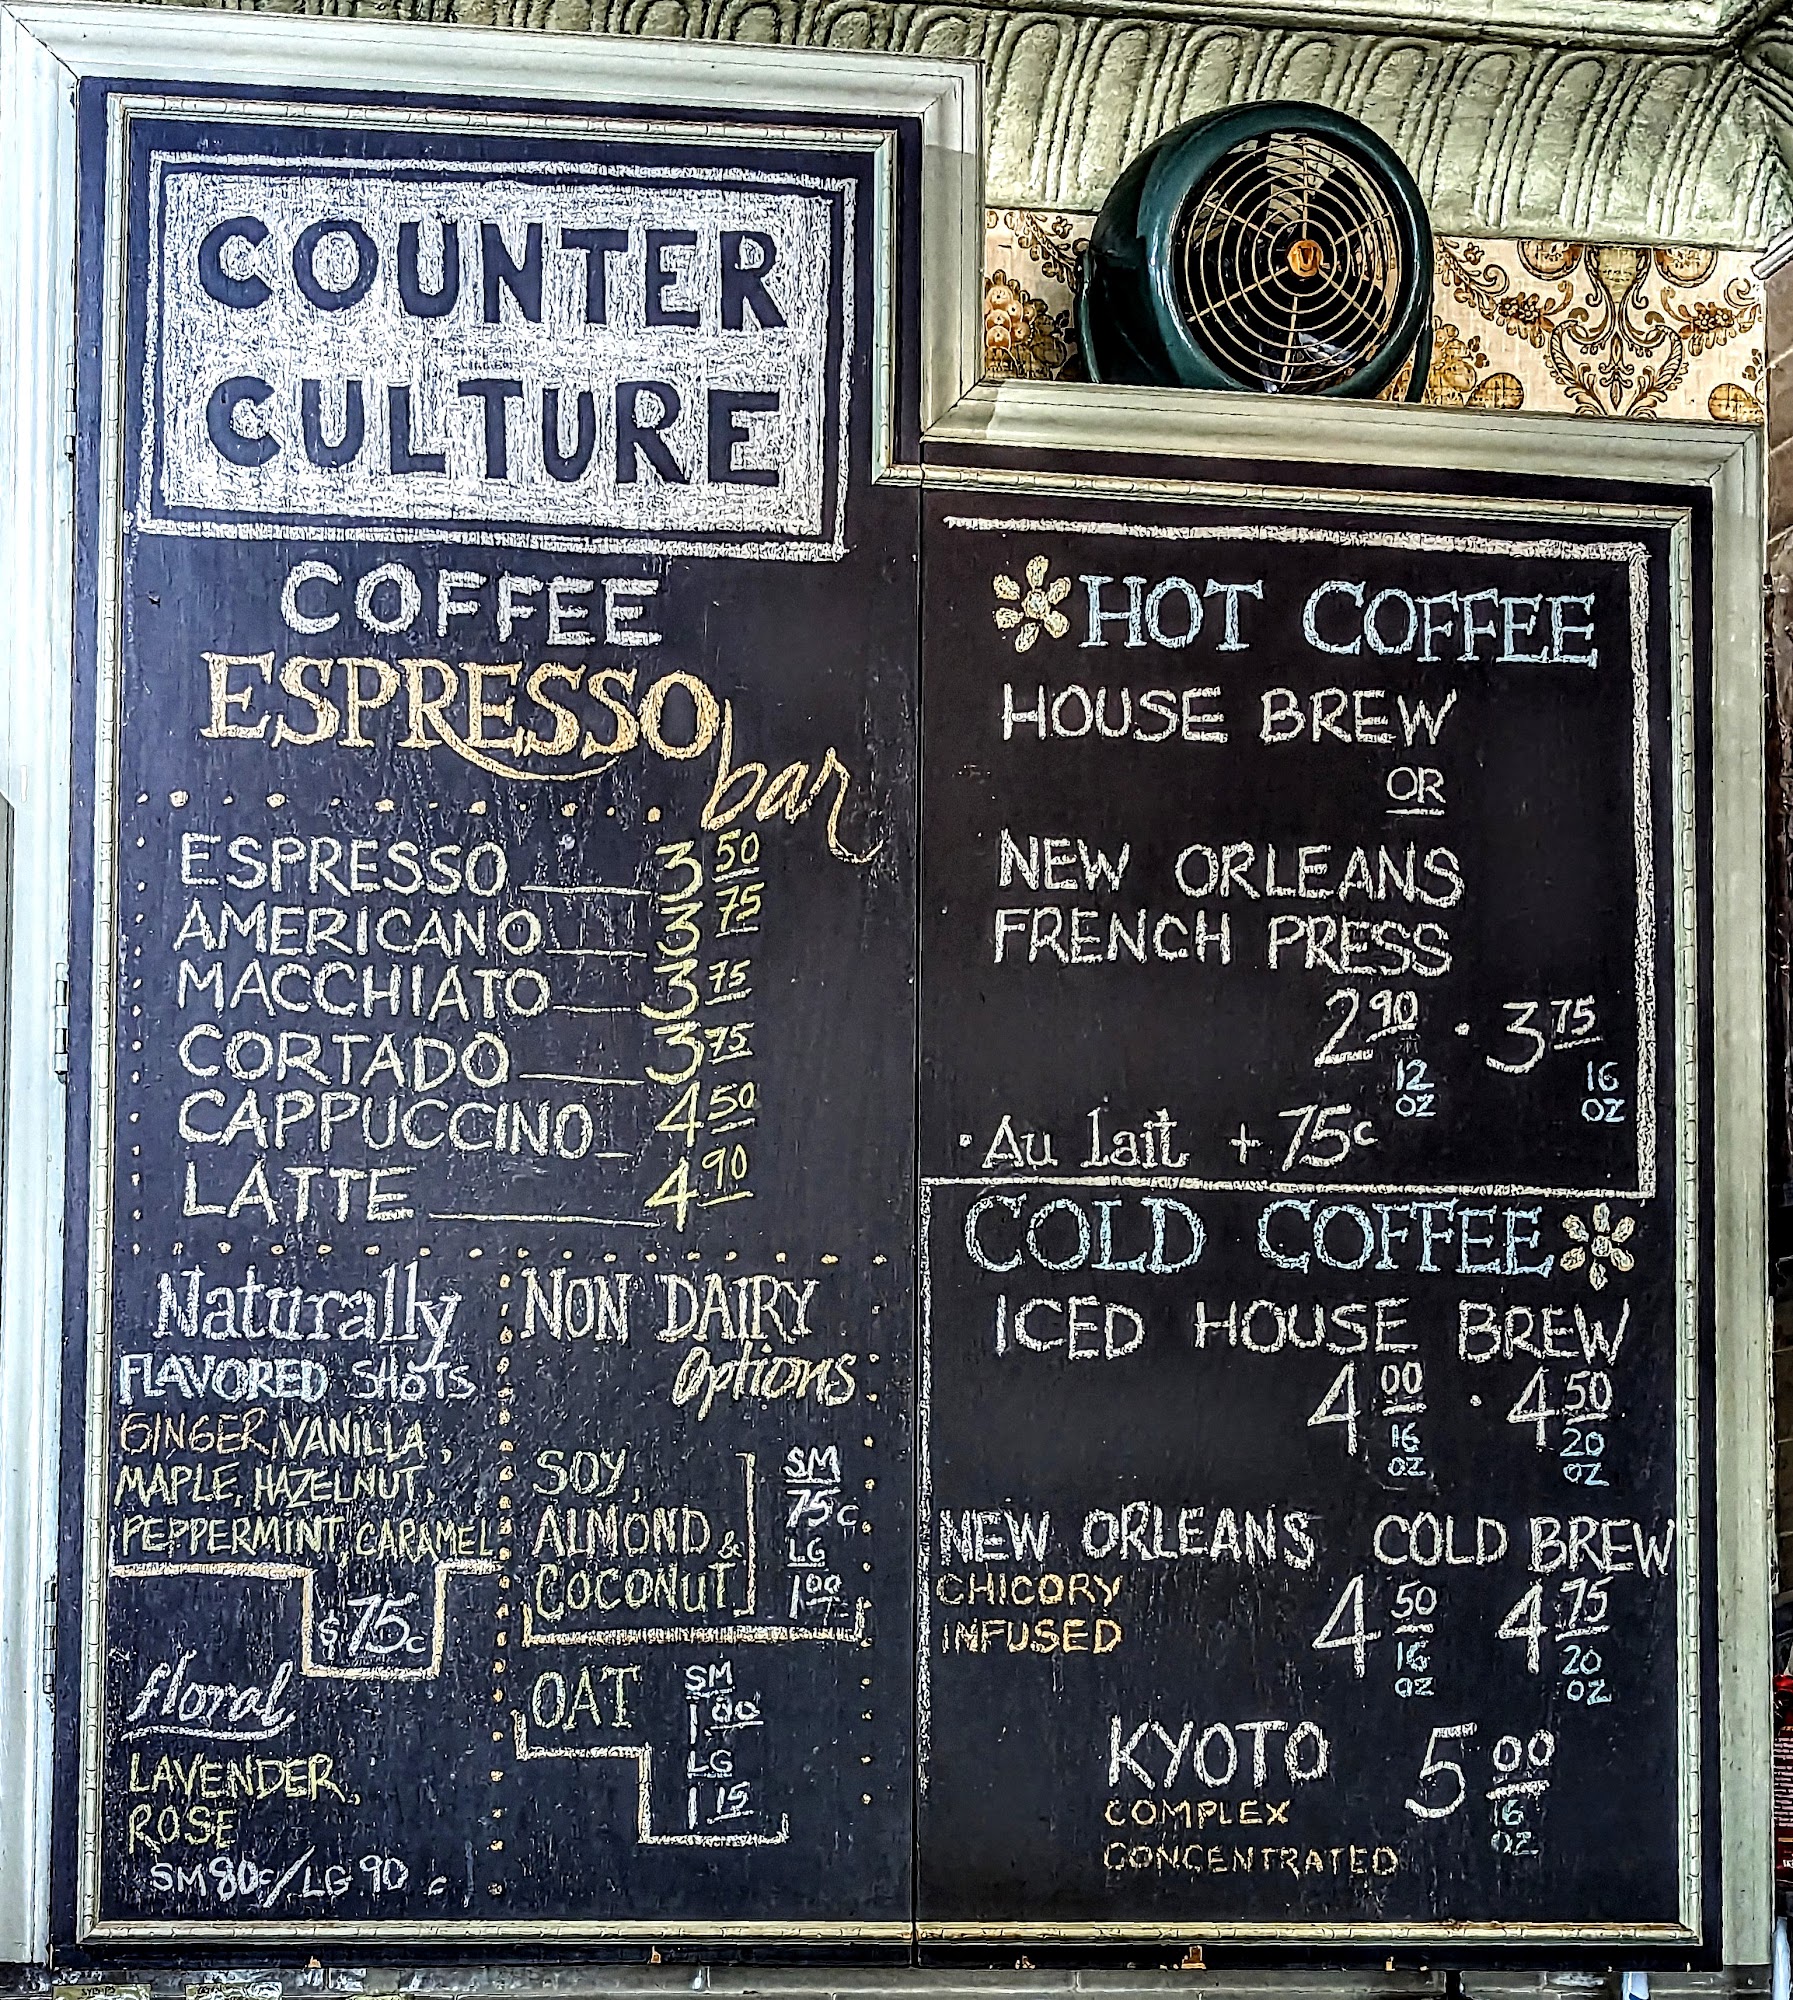 COUNTER
CULTURE
COFFEE
ESPRESSO bar
ESPRESSO 3 50
AMERICANO 3 75
MACCHIATO 3 75
CORTADO 3 75
CAPPUCCINO 4 50
LATTE 4 90
Naturally
FLAVORED SHOTS
GINGER, VANILLA,
MAPLE, HAZELNUT,
PEPPERMINT, CARAMEL
$ 75c
floral
LAVENDER,
ROSE
SM 80c/LG 90 c
NON DAIRY
Options
SOY,
ALMOND &
COCONUT
SM
75c
LG
1 00
OAT
SM
1 00
LG
1 15
HOT COFFEE
HOUSE BREW
OR
NEW ORLEANS
FRENCH PRESS
2 90 · 3 75
12 OZ 16 OZ
· Au lait + 75c
COLD COFFEE
ICED HOUSE BREW
4 00 · 4 50
16 OZ 20 OZ
NEW ORLEANS COLD BREW
CHICORY
INFUSED
4 50 4 75
16 OZ 20 OZ
KYOTO 5 00
16 OZ
COMPLEX
CONCENTRATED